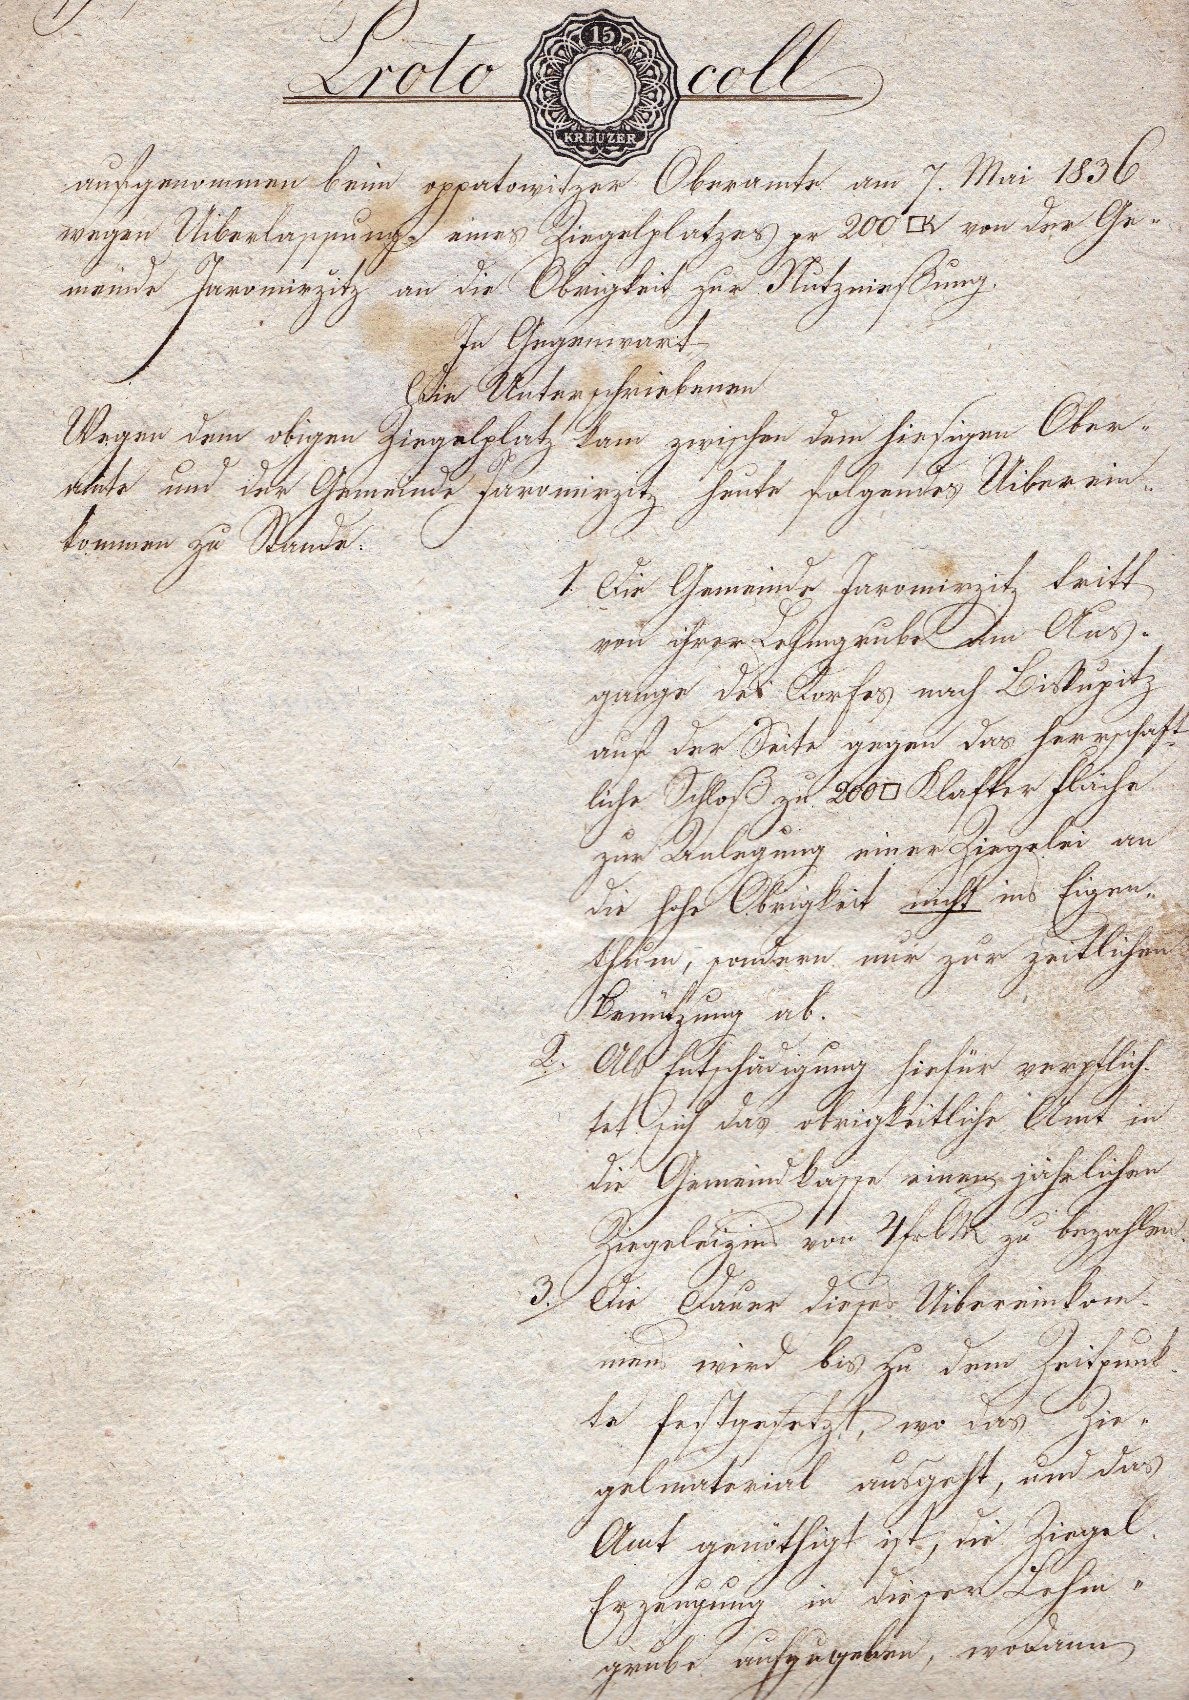 Protocoll
15
KREUZER
aufgenommen beim oppatowitzer Oberamte am 7. Mai 1836
wegen Uiberlassung eines Ziegelplatzes pr 200 □K von der Ge-
meinde Jaromirzitz an die Obrigkeit zur Nutznießung.
In Gegenwart
Die Unterschriebenen
Wegen dem obigen Ziegelplatz kam zwischen dem hiesigen Ober-
amte und der Gemeinde Jaromirzitz heute folgendes Uiberein-
kommen zu Stande.
1. Die Gemeinde Jaromirzitz tritt
von ihrer Lehmgrube am Aus-
gange des Dorfes nach Biskupitz
auf der Seite gegen das herrschaft-
liche Schloß zu 200□ Klafter Fläche
zur Anlegung einer Ziegelei an
die hohe Obrigkeit nicht ins Eigen-
thum, sondern nur zur zeitlichen
Benützung ab.
2. Als Entschädigung hiefür verpflich-
tet sich das obrigkeitliche Amt in
die Gemeindkasse einen jährlichen
Ziegeleizins von 4 f CM zu bezahlen.
3. Die Dauer dieses Uibereinkom-
mens wird bis zu dem Zeitpunk-
te festgesetzt, wo das Zie-
gelmaterial ausgeht, und das
Amt genöthigt ist, die Ziegel-
Erzeugung in dieser Lehm-
grube aufzugeben, wodann